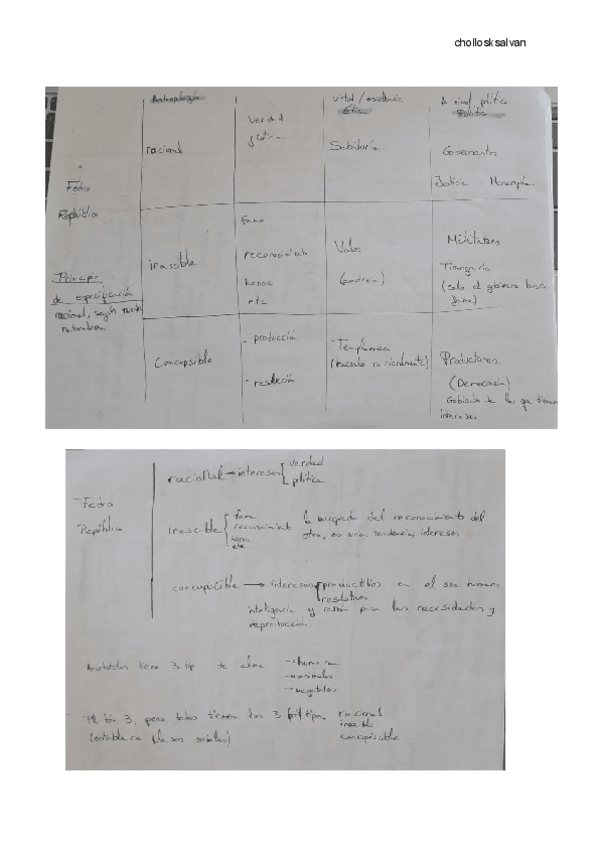 chollosksalvan
Antropología
Virtud / excelencia
Ética
A nivel político
Política
racional
verdad
y política
Sabiduría
Gobernantes
Justicia Monarquía
- Fedro
República
Principio
de especificación
racional, según nuestra
naturaleza
irascible
fama
reconocimiento
honor
etc
Valor
(andreia)
Militares
Timarquía
(solo el gobierno busca
fama)
Concupscible
- producción
- resolución
Templanza
Productores
(Democracia)
Gobierno de los que tienen
intereses
- Fedro
República
racional → intereses
verdad
política
irascible
fama
reconocimiento
honor
etc
la búsqueda del reconocimiento del
otro, es una tendencia, intereses
concupiscible → intereses
productivos en el ser humano
resolutivos
inteligencia y razón para las necesidades y
reproducción.
Aristóteles tiene 3 tip de alma
→ humana
→ animales
→ vegetales
3, pero todos tienen los 3 tipos,
racional
irascible
concupiscible